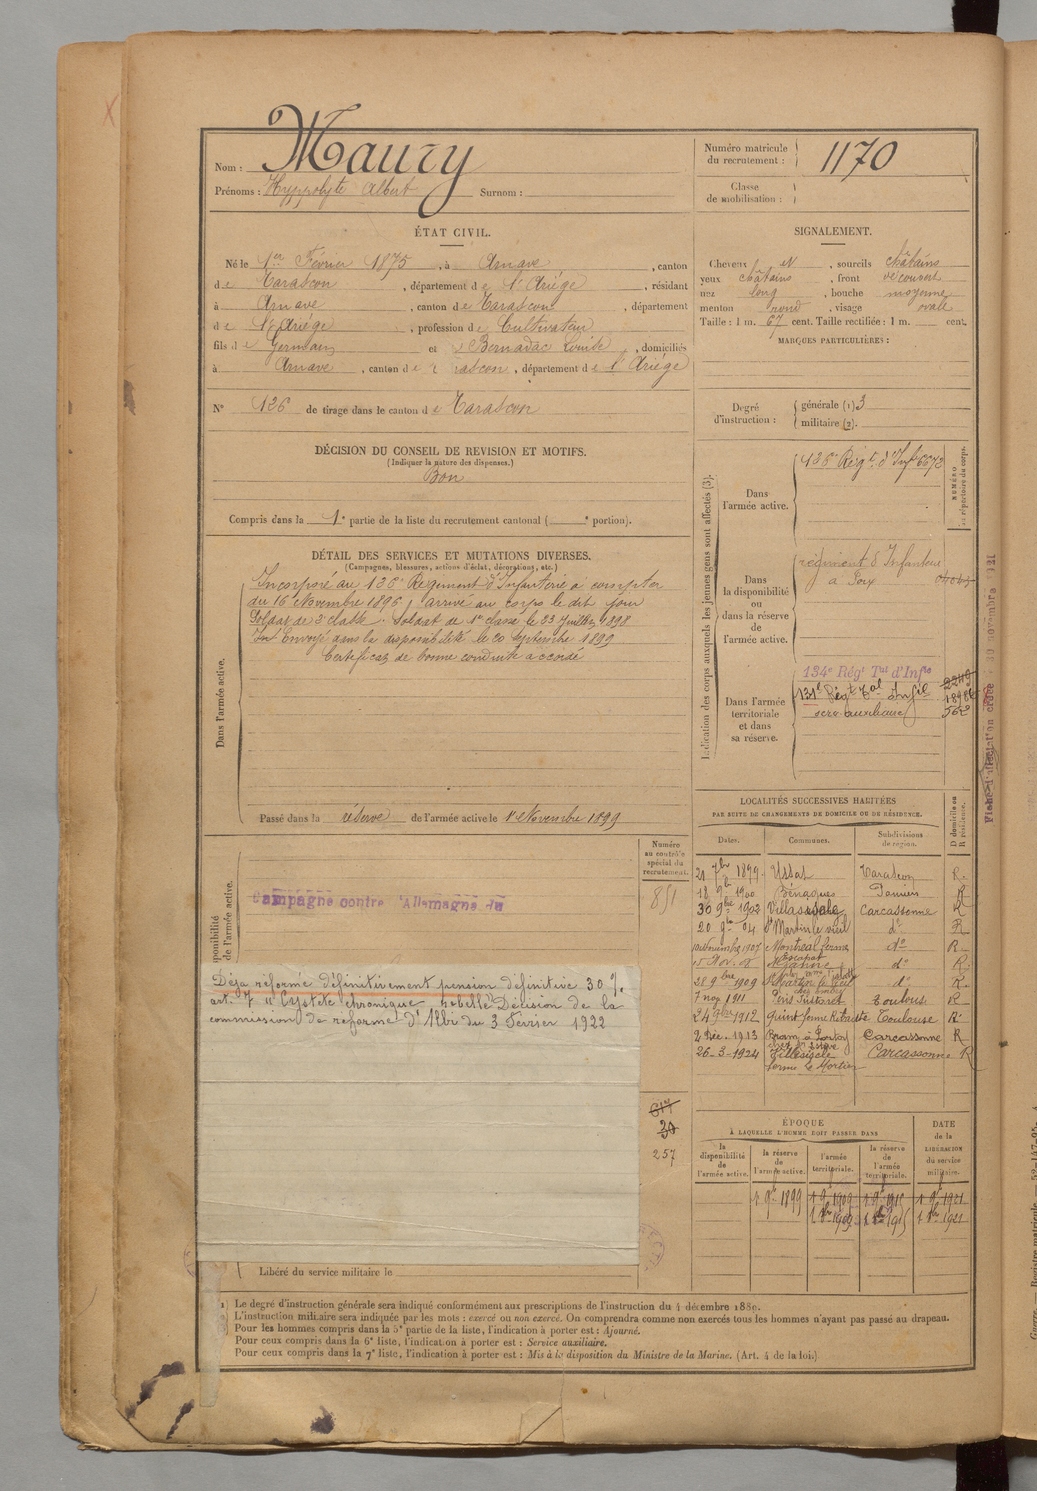 Nom : Maury
Prénoms : Hyppolyte Albert Surnom :
Numéro matricule du recrutement : 1170
Classe de mobilisation :
ÉTAT CIVIL.
Né le 1er Février 1875, à Arnave, canton
de Tarascon, département de l'Ariège, résidant
à Arnave, canton de Tarascon, département
de l'Ariége, profession de Cultivateur
fils de Germain et de Bernadac Louise, domiciliés
à Arnave, canton de Tarascon, département de l'Ariége
N° 126 de tirage dans le canton de Tarascon
SIGNALEMENT.
Cheveux N, sourcils châtains
yeux châtains, front découvert
nez long, bouche moyenne
menton rond, visage ovale
Taille : 1 m. 67 cent. Taille rectifiée : 1 m. cent.
MARQUES PARTICULIÈRES :
Degré d'instruction : générale (1) 3
militaire (2).
DÉCISION DU CONSEIL DE REVISION ET MOTIFS.
(Indiquer la nature des dispenses.)
Bon
Compris dans la 1e partie de la liste du recrutement cantonal ( e portion).
DÉTAIL DES SERVICES ET MUTATIONS DIVERSES.
(Campagnes, blessures, actions d'éclat, décorations, etc.)
Dans l'armée active.
Incorporé au 126e Régiment d'Infanterie à compter
du 16 Novembre 1896, arrivé au corps le dit jour
Soldat de 2e classe. Soldat de 1re classe le 23 Juillet 1898
Envoyé dans la disponibilité le 20 Septembre 1899
Certificat de bonne conduite accordé
Passé dans la réserve de l'armée active le 1er Novembre 1899
Indication des corps auxquels les jeunes gens sont affectés (3).
NUMÉRO au répertoire du corps.
Dans l'armée active.
126e Régt d'Infie 6672
Dans la disponibilité ou dans la réserve de l'armée active.
régiment d'Infanterie
à Foix
Dans l'armée territoriale et dans sa réserve.
134e Régt Tal d'Infie 2249
131e Régt Tal Infie 18986
serv auxiliaire 562
Fiche d'affectation créée : 30 novembre 1921
LOCALITÉS SUCCESSIVES HABITÉES
PAR SUITE DE CHANGEMENTS DE DOMICILE OU DE RÉSIDENCE.
Dates. Communes. Subdivisions de région. D domicile ou R résidence.
21 7bre 1899 Ussat Tarascon R.
18 9b 1900 Bénagues Pamiers R
30 9bre 1902 Villasavary Carcassonne R
20 9b 04 St Martin le vieil do R
10 Novembre 1907 Montréal ferme do R
15 Nov. 08 do R.
28 9bre 1909 St Martin le vieil do R.
7 nov 1911 Toulouse R
24 9bre 1912 Quint ferme Toulouse R
2 Déc. 1913 Bram Carcassonne R
26-3-1924 Villesiscle Carcassonne R
ferme Le Mortier
Numéro au contrôle spécial du recrutement.
851
Campagne contre l'Allemagne du
Déja réformé définitivement pension définitive 30 %
art. 7 "Cystite chronique rebelle" Décision de la
commission de réforme d'Albi du 3 Février 1922
617
30
257
ÉPOQUE
À LAQUELLE L'HOMME DOIT PASSER DANS
la disponibilité de l'armée active. la réserve de l'armée active. l'armée territoriale. la réserve de l'armée territoriale.
DATE de la LIBÉRATION du service militaire.
1 9b 1899 1 9b 1909 1 9b 1915 1 9b 1921
1 8bre 1909 1 8bre 1915 1 8bre 1921
Libéré du service militaire le
(1) Le degré d'instruction générale sera indiqué conformément aux prescriptions de l'instruction du 4 décembre 1889.
L'instruction militaire sera indiquée par les mots : exercé ou non exercé. On comprendra comme non exercés tous les hommes n'ayant pas passé au drapeau.
Pour les hommes compris dans la 5e partie de la liste, l'indication à porter est : Ajourné.
Pour ceux compris dans la 6e liste, l'indication à porter est : Service auxiliaire.
Pour ceux compris dans la 7e liste, l'indication à porter est : Mis à la disposition du Ministre de la Marine. (Art. 4 de la loi.)